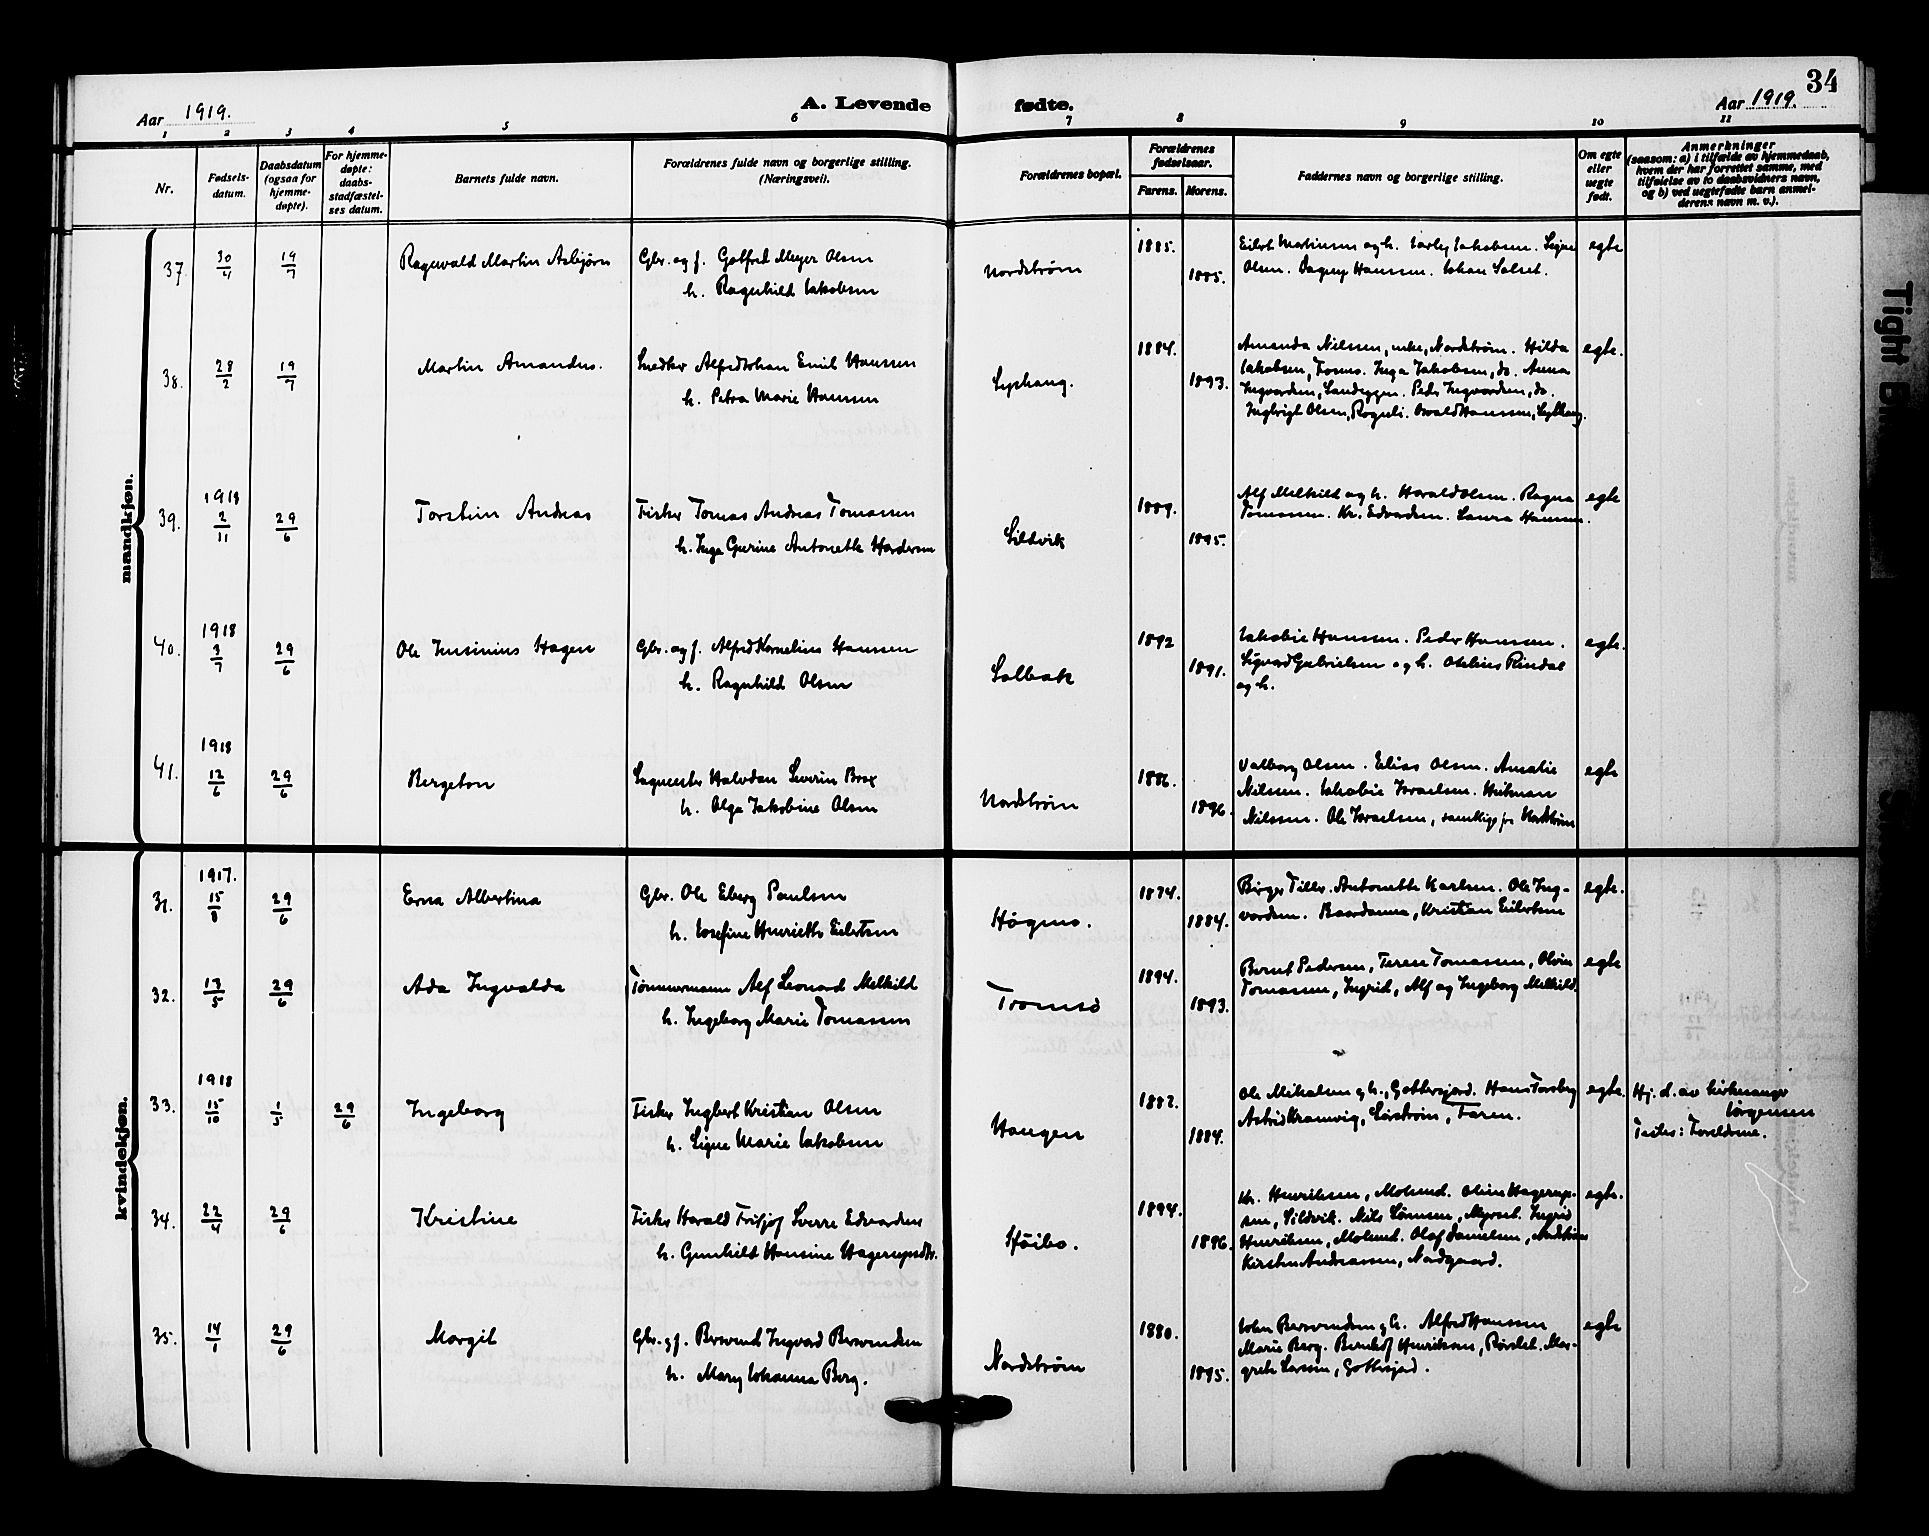 34
Aar 1919.
A. Levende
fødte.
Aar 1919.
1 2 3 4 5 6 7 8 9 10 11
Nr.
Fødsels-
datum.
Daabsdatum
(ogsaa for
hjemme-
døpte).
For hjemme-
døpte:
daabs-
stadfæstel-
ses datum.
Barnets fulde navn.
Forældrenes fulde navn og borgerlige stilling.
(Næringsvei).
Forældrenes bopæl.
Forældrenes
fødselsaar.
Farens. Morens.
Faddernes navn og borgerlige stilling.
Om egte
eller
uegte
født.
Anmerkninger
(saasom: a) i tilfælde av hjemmedaab,
hvem der har forrettet samme, med
tilføielse av to daabsvidners navn,
og b) ved uegtefødte barn anmel-
derens navn m. v.).
mandkjøn.
37. 30/4 19/7 Ragnvald Martin Asbjørn
Gbr. og f. Gotfred Meyer Olsen
h. Ragnhild Jakobsen
Nordstrøm
1885.
1885.
Eilert Martinsen og h. Jakobsen. Signe
Olsen. Dagny Hanssen. Johan
egte
38. 28/2 19/7 Martin Amandus.
Snedker Alfred Johan Emil Hanssen
h. Petra Marie Hanssen
1884.
1893.
Amanda Nilssen, enke, Nordstrøm. Hilda
Jakobsen, Inga Jakobsen, do. Anna
Ingvardsen, Sandeggen. Peder Ingvardsen, do.
Ingbrigt Olsen, Rognli. Osvald Hanssen,
egte.
39. 1918 2/11 29/6 Torstein Andreas
Fisker Tomas Andreas Tomassen
h. Inga Antonette
Sildvik
1889.
1895.
Alf Melkild og h. Harald Olsen. Ragna
Tomassen. Kr. Edvardsen. Laura Hanssen.
egte
40. 1918 3/7 29/6 Ole Hagen
Gbr. og f. Alfred Kornelius Hanssen
h. Ragnhild Olsen
Solbak
1892
1891.
Jakobie Hanssen. Peder Hanssen.
Sigvard Gabrielsen og h. Rindal
og h.
egte.
41. 1918 12/6 29/6 Bergeton
Halvdan Severin Brox
h. Olga Jakobine Olsen
Nordstrøm
1886.
1896.
Valborg Olsen. Elias Olsen. Amalie
Nilssen. Jakobie Israelsen.
Nilssen. Ole Israelsen, samtlige fra Nordstrøm
egte
kvindekjøn.
31. 1917. 15/8 29/6 Erna Albertina
Gbr. Ole Eberg Paulsen
h. Josefine Henriette Eilertsen
Høgmo.
1874.
1884.
Birger Tiller. Antonette Karlsen. Ole Ing-
vardsen. Kristian Eilertsen
egte.
32. 13/5 29/6 Ada Ingvalda
Tømmermann Alf Leonard Melkild
h. Ingeborg Marie Tomassen
Tromsø
1894.
1893.
Bernt Pedersen, Terese Tomassen, Olvin
Tomassen, Ingrid, Alf og Ingeborg Melkild.
egte
33. 1918 15/10 1/5 29/6 Ingeborg
Fisker Ingbert Kristian Olsen
h. Signe Marie Jakobsen
Haugen
1882.
1884.
Ole Mikalsen og h., Gottesjord. Hans Torsberg
Astrid Kramvig, Sørstrøm,
egte.
Hj. d. av kirkesanger
Jørgensen
Testes: Forældrene.
34. 22/4 29/6 Kristine
Fisker Harald Fritjof Sverre Edvardsen
h. Gunhild Hansine Hagerupsdtr.
Høibo.
1894.
1896.
Kr. Henriksen, Molund. Oline Hagerup-
sen, Sildvik. Nils Sørensen, Myrset. Ingrid
Henriksen, Molund. Olaf Danielsen, Nordstrøm
Kirsten Andreassen, Nordgaard.
egte.
35. 14/1 29/6 Margit
Gbr. og f. Bersvend Ingvard Bersvendsen
h. Mary Johanna Berg.
Nordstrøm
1880.
1895.
Johan Bersvendsen og h. Alfred Hanssen
Marie Berg. Bernhof Henriksen, Mar-
grete Larsen, Gottesjord.
egte